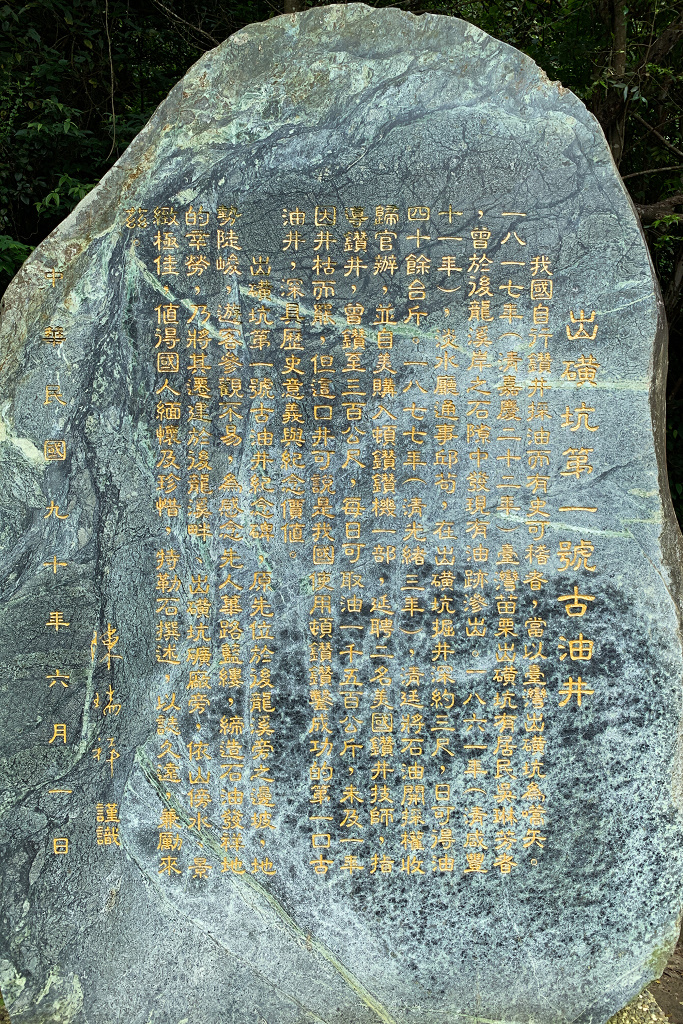 出磺坑第一號古油井
我國自行鑽井採油而有史可稽者，當以臺灣出磺坑為嚆矢。
一八一七年（清嘉慶二十二年）臺灣苗栗出磺坑有居民吳琳芳者
，曾於後龍溪岸之石隙中發現有油跡滲出。一八六一年（清咸豐
十一年），淡水廳通事邱苟，在出磺坑掘井深約三尺，日可得油
四十餘台斤。一八七七年（清光緒三年），清廷將石油開採權收
歸官辦，並自美購入頓鑽鑽機一部，延聘二名美國鑽井技師，指
導鑽井，曾鑽至三百公尺，每日可取油一千五百公斤，未及一年
因井枯而罷，但這口井可說是我國使用頓鑽鑽鑿成功的第一口古
油井，深具歷史意義與紀念價值。
出磺坑第一號古油井紀念碑，原先位於後龍溪旁之邊坡，地
勢陡峻，遊客參觀不易，為感念先人篳路藍縷，締造石油發祥地
的辛勞，乃將其遷建於後龍溪畔、出磺坑礦廠旁，依山傍水，景
緻極佳，值得國人緬懷及珍惜，特勒石撰述，以誌久遠，兼勵來
茲。
陳瑞祥 謹識
中華民國九十年六月一日